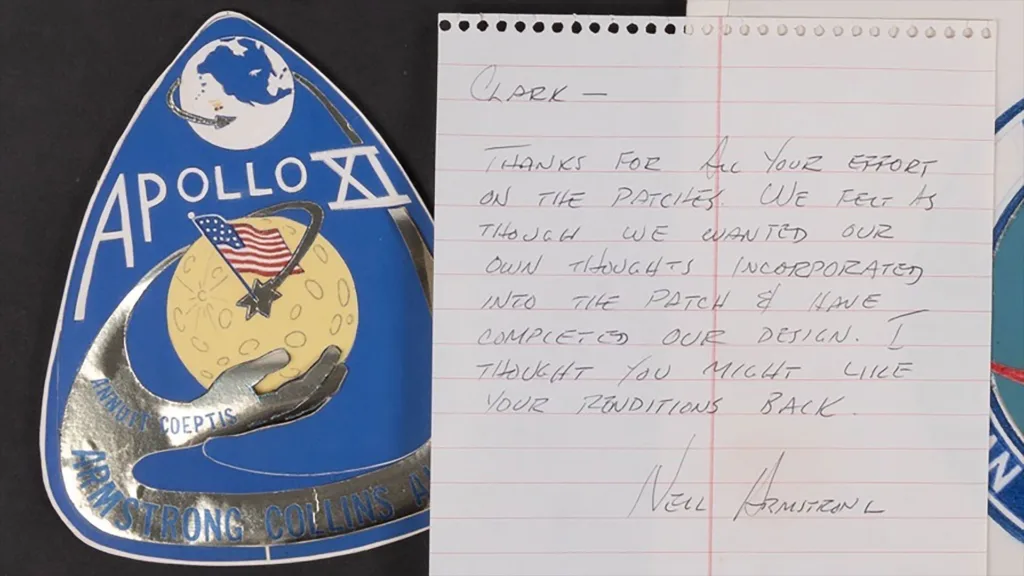 APOLLO XI
ANNUIT COEPTIS
ARMSTRONG COLLINS
CLARK —
THANKS FOR ALL YOUR EFFORT
ON THE PATCHES. WE FELT AS
THOUGH WE WANTED OUR
OWN THOUGHTS INCORPORATED
INTO THE PATCH & HAVE
COMPLETED OUR DESIGN. I
THOUGHT YOU MIGHT LIKE
YOUR RENDITIONS BACK.
NEIL ARMSTRONG